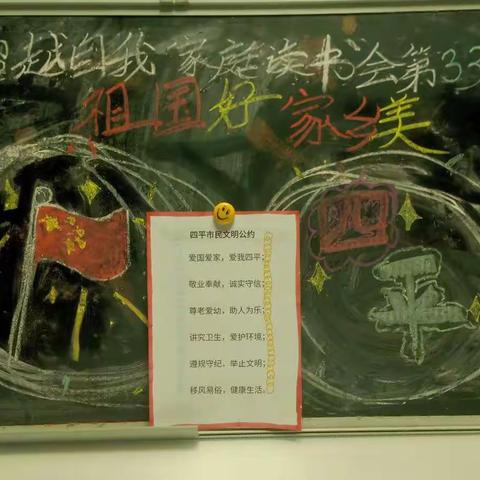 超越自我 家庭读书会第33
祖国好 家乡美
四平
四平市民文明公约
爱国爱家，爱我四平；
敬业奉献，诚实守信；
尊老爱幼，助人为乐；
讲究卫生，爱护环境；
遵规守纪，举止文明；
移风易俗，健康生活。